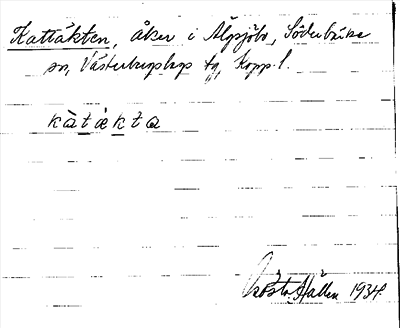 Kattåkten, åker i Älgsjöbo, Söderbärke
sn, Västerbergslags fg, Kopp. l.
kàtåkta
Gösta Hallén 1934.